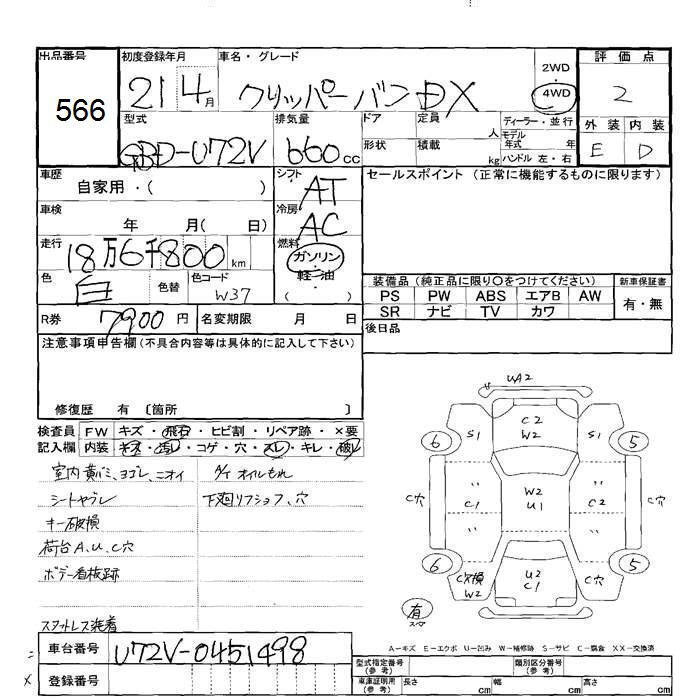 出品番号
566
初度登録年月
21 4月
車名・グレード
クリッパーバン DX
2WD
・
4WD
評価点
2
外装 内装
E D
型式
GBD-U72V
排気量
660cc
ドア
定員
人
ディーラー・並行
モデル
年式 年
形状
積載
kg
ハンドル 左・右
車歴
自家用・( )
シフト
AT
セールスポイント (正常に機能するものに限ります)
車検
年 月( 日)
冷房
AC
走行
18万6千800km
燃料
ガソリン
・
軽油
・
( )
色
白
色替
色コード
W37
装備品 (純正品に限り○をつけてください)
新車保証書
PS PW ABS エアB AW
SR ナビ TV カワ
有・無
R券
7900円
名変期限 月 日
後日品
注意事項申告欄(不具合内容等は具体的に記入して下さい)
修復歴 有 〔箇所 〕
検査員
記入欄
FW キズ・飛石・ヒビ割・リペア跡・×要
内装 キズ・汚レ・コゲ・穴・スレ・キレ・破レ
室内黄バミ、ヨゴレ、ニオイ
シートヤブレ
キー破損
荷台A、U、C穴
ボデー看板跡
スタットレス装着
A/T オイルもれ
下廻りフショク、穴
UA2
C2
W2
6
S1
S1
5
C穴
〃
C1
〃
W2
U1
〃
C2
〃
C穴
6
C穴損
W2
U2
C1
C穴
5
有
スマ
A-キズ E-エクボ U-凹み W-補修跡 S-サビ C-腐食 XX-交換済
車台番号
U72V-0451498
登録番号
型式指定番号
(参考)
類別区分番号
(参考)
車庫証明用
(参考)
長さ cm
幅 cm
高さ cm